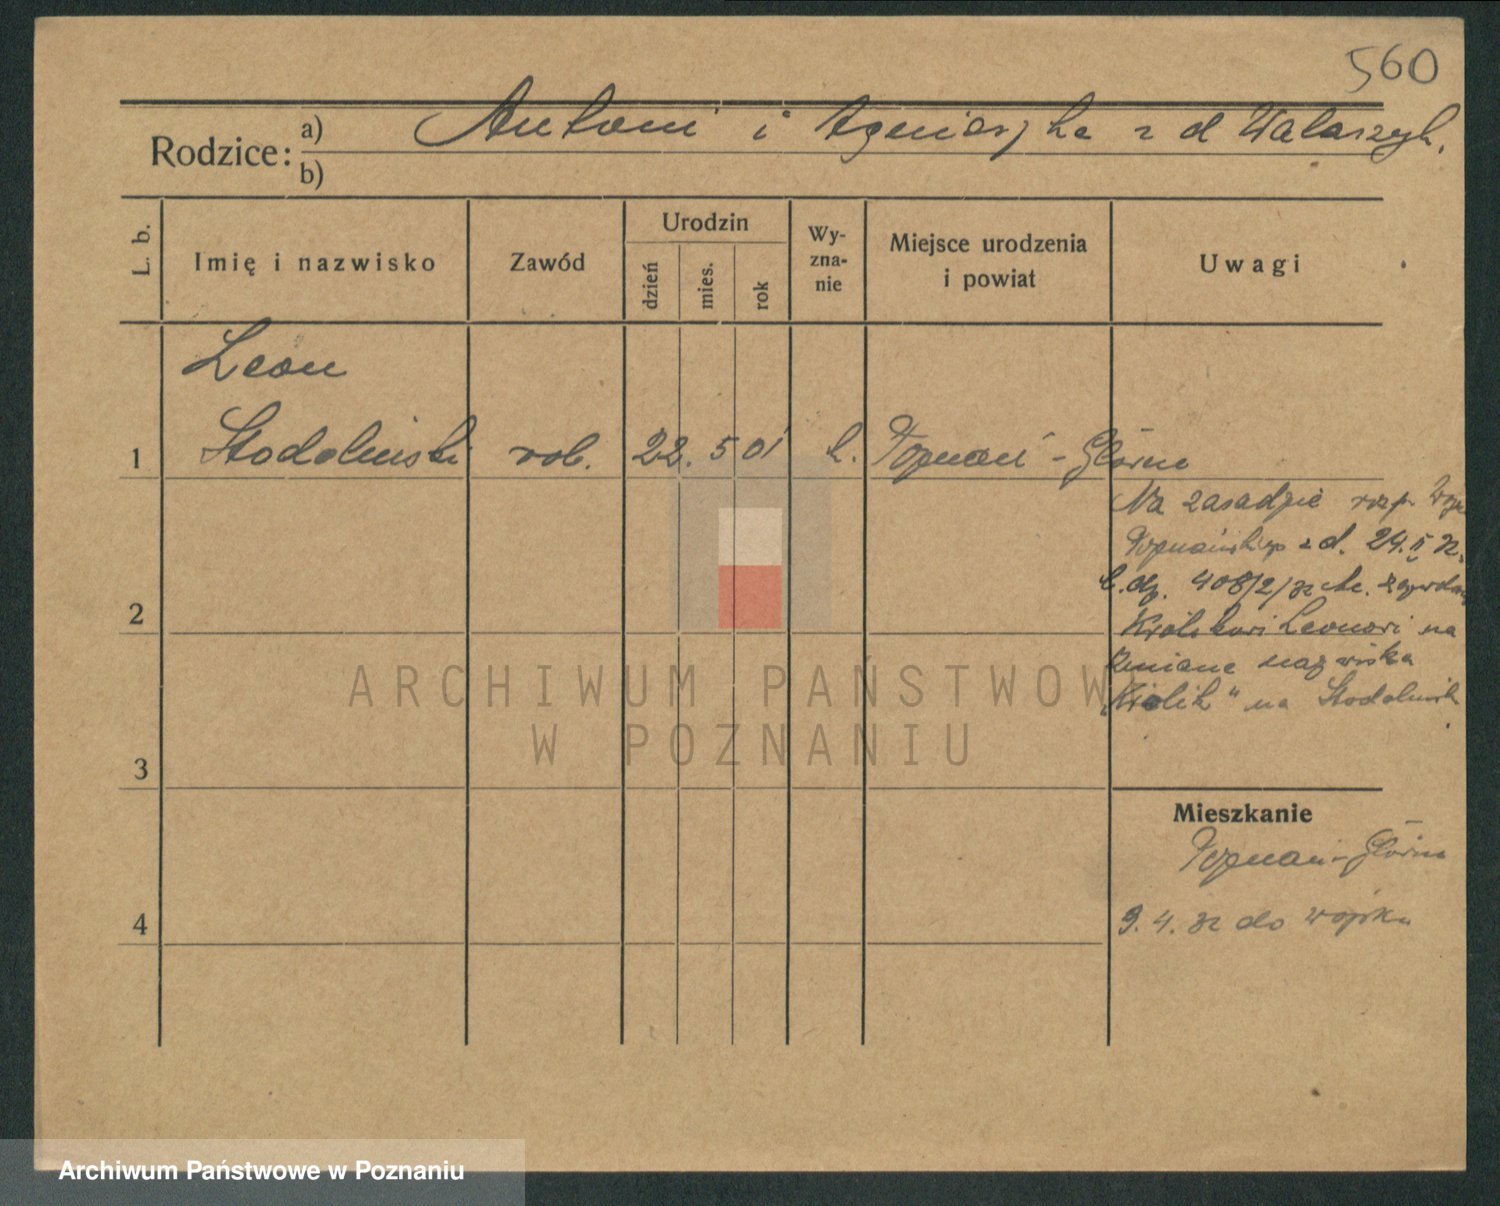 560
Rodzice: a) Antoni i Agnieszka z d Walaszyk.
b)
L. b.
Imię i nazwisko
Zawód
Urodzin
dzień
mies.
rok
Wy-
zna-
nie
Miejsce urodzenia
i powiat
Uwagi
Leon
1 Stodolński rob. 22. 5 01 k. Poznań - Główna
Na zasadzie rozp.
Poznańskiego z d. 24. II 32.
L. dz. 408/2/32
2
Leonowi na
zmianę nazwiska
„Królik" na
3
Mieszkanie
Poznań - Główna
4
9. 4. 32 do wojska
ARCHIWUM PAŃSTWOWE
W POZNANIU
Archiwum Państwowe w Poznaniu